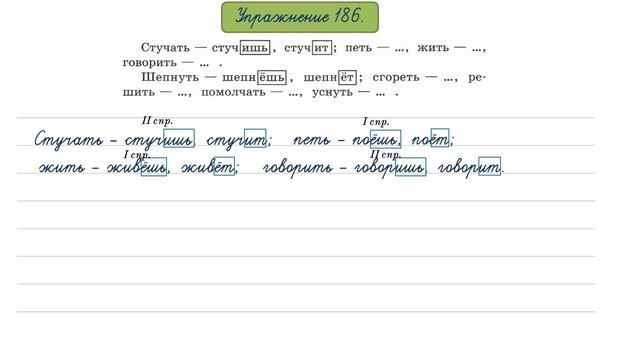 Упражнение 186.
Стучать — стучишь, стучит; петь — ..., жить — ...,
говорить — ... .
Шепнуть — шепнёшь, шепнёт; сгореть — ..., ре-
шить — ..., помолчать — ..., уснуть — ... .
II спр. I спр.
Стучать – стучишь, стучит; петь – поёшь, поёт;
I спр. II спр.
жить – живёшь, живёт; говорить – говоришь, говорит.